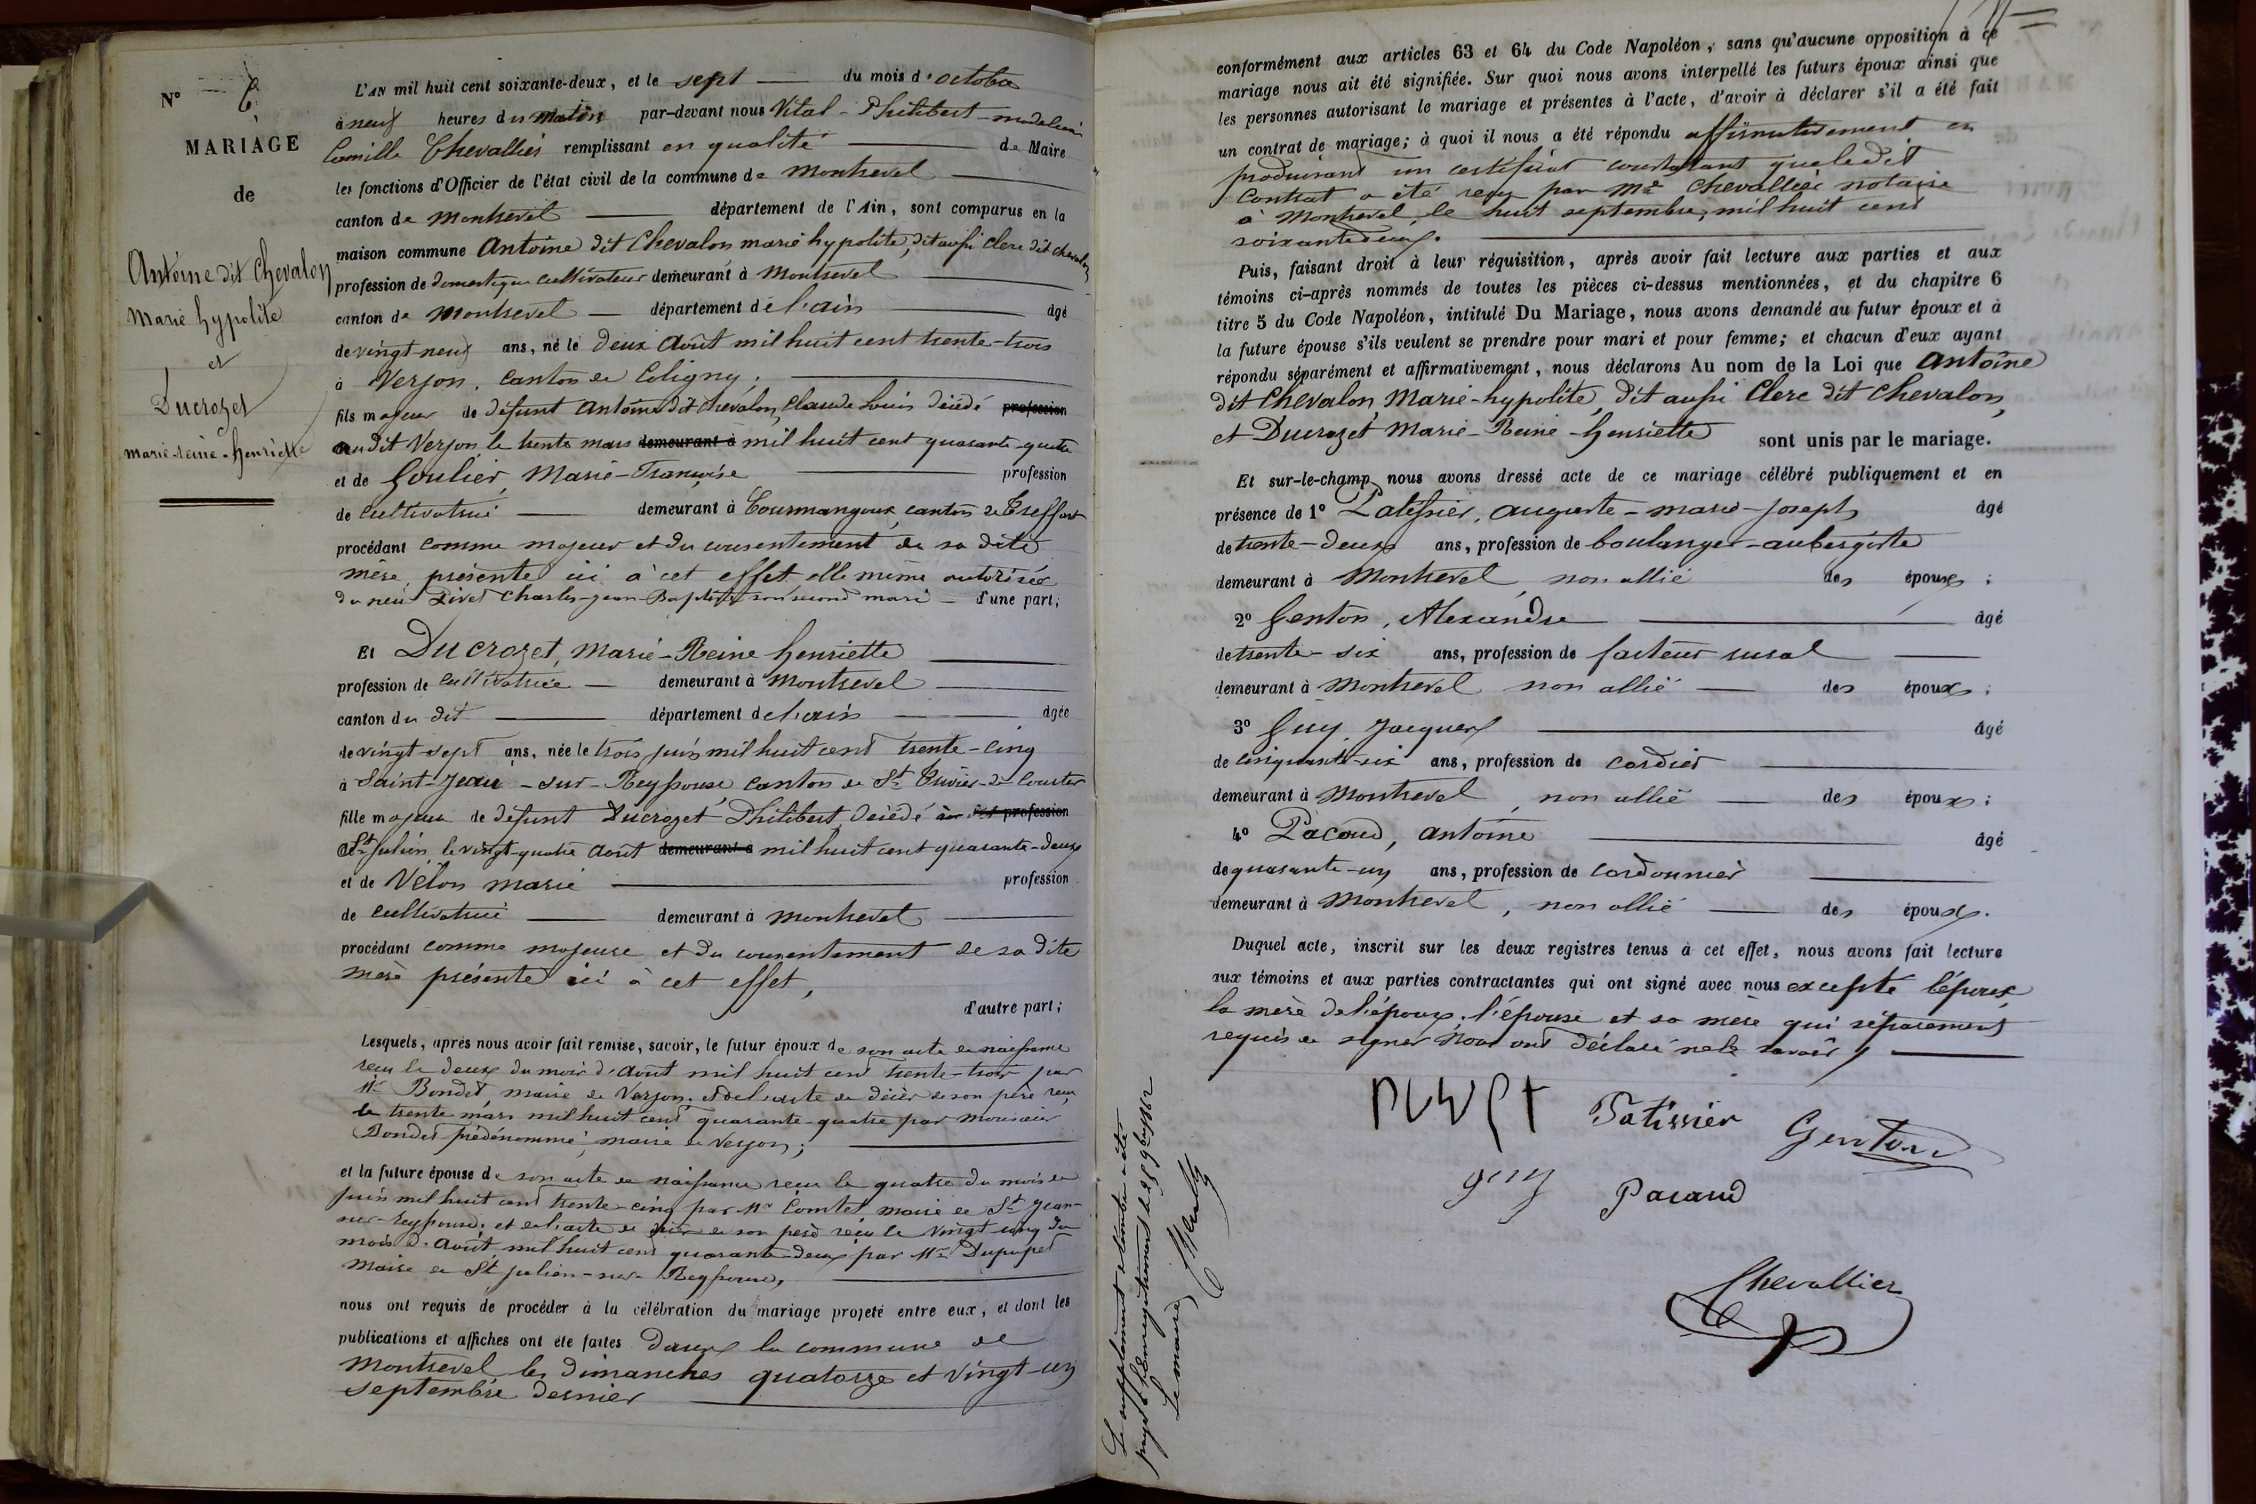 N° 6
MARIAGE
de
Antoine dit Chevalon
Marie hypolite
et
Ducrozet
marie-reine-henriette
L'AN mil huit cent soixante-deux, et le sept du mois d'octobre
à neuf heures du matin par-devant nous Vital-Philibert-
Camille Chevallier remplissant en qualité de Maire
les fonctions d'Officier de l'état civil de la commune de Montrevel
canton de Montrevel département de l'Ain, sont comparus en la
maison commune Antoine dit Chevalon marie hypolite, dit aussi Clerc dit chevalon
profession de domestique cultivateur demeurant à Montrevel
canton de Montrevel département de l'ain âgé
de vingt-neuf ans, né le deux Août mil huit cent trente-trois
à Verjon, canton de Coligny,
fils majeur de défunt Antoine dit chevalon, Claude Louis décédé profession
audit Verjon le trente mars demeurant à mil huit cent quarante-quatre
et de Goulier, Marie-Françoise profession
de cultivatrice demeurant à Courmangoux, canton de Treffort
procédant comme majeur et du consentement de sa dite
mère, présente ici à cet effet elle même autorisée
du sieur Pivet Charles-jean-Baptiste son second mari d'une part;
Et Ducrozet, Marie-Reine henriette
profession de cultivatrice demeurant à Montrevel
canton du dit département de l'ain âgée
de vingt-sept ans, née le trois juin mil huit cent trente-cinq
à Saint-Jean-sur-Reyssouse canton de St Trivier-de-Courtes
fille majeure de défunt Ducrozet Philibert, décédé à profession
St Julien le vingt-quatre Août demeurant à mil huit cent quarante-deux
et de Velon marie profession
de cultivatrice demeurant à Montrevel
procédant comme majeure et du consentement de sa dite
mère présente ici à cet effet,
d'autre part;
Lesquels, après nous avoir fait remise, savoir, le futur époux de son acte de naissance
reçu le deux du mois d'Août mil huit cent trente-trois par
Mr Bondet, maire de Verjon, et de l'acte de décès de son père reçu
le trente mars mil huit cent quarante-quatre par monsieur
Bondet prédénommé, maire de Verjon;
et la future épouse de son acte de naissance reçu le quatre du mois de
juin mil huit cent trente-cinq par Mr Comtet maire de St Jean-
sur-Reyssouse, et de l'acte de décès de son père reçu le vingt-cinq du
mois d'Août mil huit cent quarante-deux par Mr Dupupet
Maire de St julien-sur-Reyssouse,
nous ont requis de procéder à la célébration du mariage projeté entre eux, et dont les
publications et affiches ont été faites dans la commune de
Montrevel les dimanches quatorze et vingt-un
septembre dernier
conformément aux articles 63 et 64 du Code Napoléon, sans qu'aucune opposition à ce
mariage nous ait été signifiée. Sur quoi nous avons interpellé les futurs époux ainsi que
les personnes autorisant le mariage et présentes à l'acte, d'avoir à déclarer s'il a été fait
un contrat de mariage; à quoi il nous a été répondu affirmativement en
produisant un certificat constatant que ledit
Contrat a été reçu par Me Chevallier notaire
à Montrevel, le huit septembre, mil huit cent
soixante-deux.
Puis, faisant droit à leur réquisition, après avoir fait lecture aux parties et aux
témoins ci-après nommés de toutes les pièces ci-dessus mentionnées, et du chapitre 6
titre 5 du Code Napoléon, intitulé Du Mariage, nous avons demandé au futur époux et à
la future épouse s'ils veulent se prendre pour mari et pour femme; et chacun d'eux ayant
répondu séparément et affirmativement, nous déclarons Au nom de la Loi que Antoine
dit Chevalon, Marie-hypolite, dit aussi Clerc dit Chevalon,
et Ducrozet Marie-Reine-henriette sont unis par le mariage.
Et sur-le-champ nous avons dressé acte de ce mariage célébré publiquement et en
présence de 1° Patissier, auguste-marie-joseph âgé
de trente-deux ans, profession de boulanger-aubergiste
demeurant à Montrevel, non allié des époux;
2° Genton, Alexandre âgé
de trente-six ans, profession de facteur rural
demeurant à Montrevel non allié des époux;
3° Guy, Jacques âgé
de cinquante-six ans, profession de cordier
demeurant à Montrevel, non allié des époux;
4° Pacoud, antoine âgé
de quarante-un ans, profession de cordonnier
demeurant à Montrevel, non allié des époux.
Duquel acte, inscrit sur les deux registres tenus à cet effet, nous avons fait lecture
aux témoins et aux parties contractantes qui ont signé avec nous excepté l'époux,
la mère de l'époux, l'épouse et sa mère qui séparement
requis de signer nous ont déclaré ne le savoir
Patissier
Genton
guy
Pacoud
Chevallier
Le supplément timbre acté
Le maire,